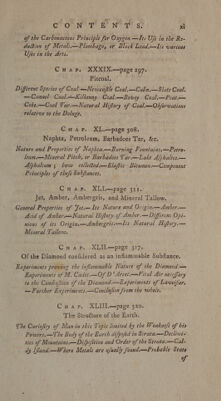 CONTENTS. xi
of the Carbonaceous Principle for Oxygen.—Its Use in the Re-
duction of Metals.—Plumbago, or Black Lead.—Its various
Uses in the Arts.
CHAP. XXXIX.—page 297.
Pitcoal.
Different Species of Coal—Newcastle Coal.—Culm.—Slate Coal.
—Cannel Coal.—Kilkenny Coal.—Bovey Coal.—Peat.—
Coke.—Coal Tar.—Natural History of Coal.—Observations
relative to the Deluge.
CHAP. XL.—page 308.
Naphta, Petroleum, Barbadoes Tar, &c.
Nature and Properties of Naphta.—Burning Fountains.—Petro-
leum.—Mineral Pitch, or Barbadoes Tar.—Lake Asphaltes.—
Asphaltum; how collected.—Elastic Bitumen.—Component
Principles of these Substances.
CHAP. XLI.—page 311.
Jet, Amber, Ambergris, and Mineral Tallow.
General Properties of Jet.—Its Nature and Origin.—Amber.—
Acid of Amber.—Natural History of Amber.—Different Opi-
nions of its Origin.—Ambergris.—Its Natural History.—
Mineral Tallow.
CHAP. XLII.—page 317.
Of the Diamond considered as an inflammable Substance.
Experiments proving the inflammable Nature of the Diamond.—
Experiments of M. Cadet.—Of D'Arcet.—Vital Air necessary
to the Combustion of the Diamond.—Experiments of Lavoisier.
—Further Experiments.—Conclusion from the whole.
CHAP. XLIII.—page 320.
The Structure of the Earth.
The Curiosity of Man in this Topic limited by the Weakness of his
Powers.—The Body of the Earth disposed in Strata.—Declivi-
ties of Mountains.—Disposition and Order of the Strata.—Cal-
dy Island.—Where Metals are usually found.—Probable State
of